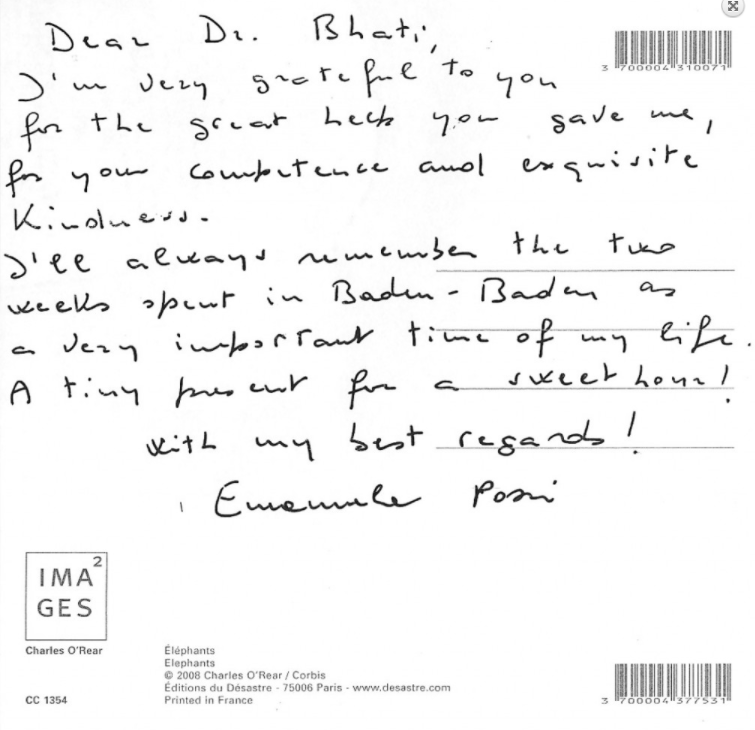 Dear Dr. Bhati,
3 700004 310071
I'm very grateful to you
for the great help you gave me,
for your competence and exquisite
Kindness.
I'll always remember the two
weeks spent in Baden-Baden as
a very important time of my life.
A tiny present for a sweet hour!
with my best regards!
Emanuele
IMA2
GES
Charles O'Rear
Éléphants
Elephants
© 2008 Charles O'Rear / Corbis
Éditions du Désastre - 75006 Paris - www.desastre.com
Printed in France
CC 1354
3 700004 377531